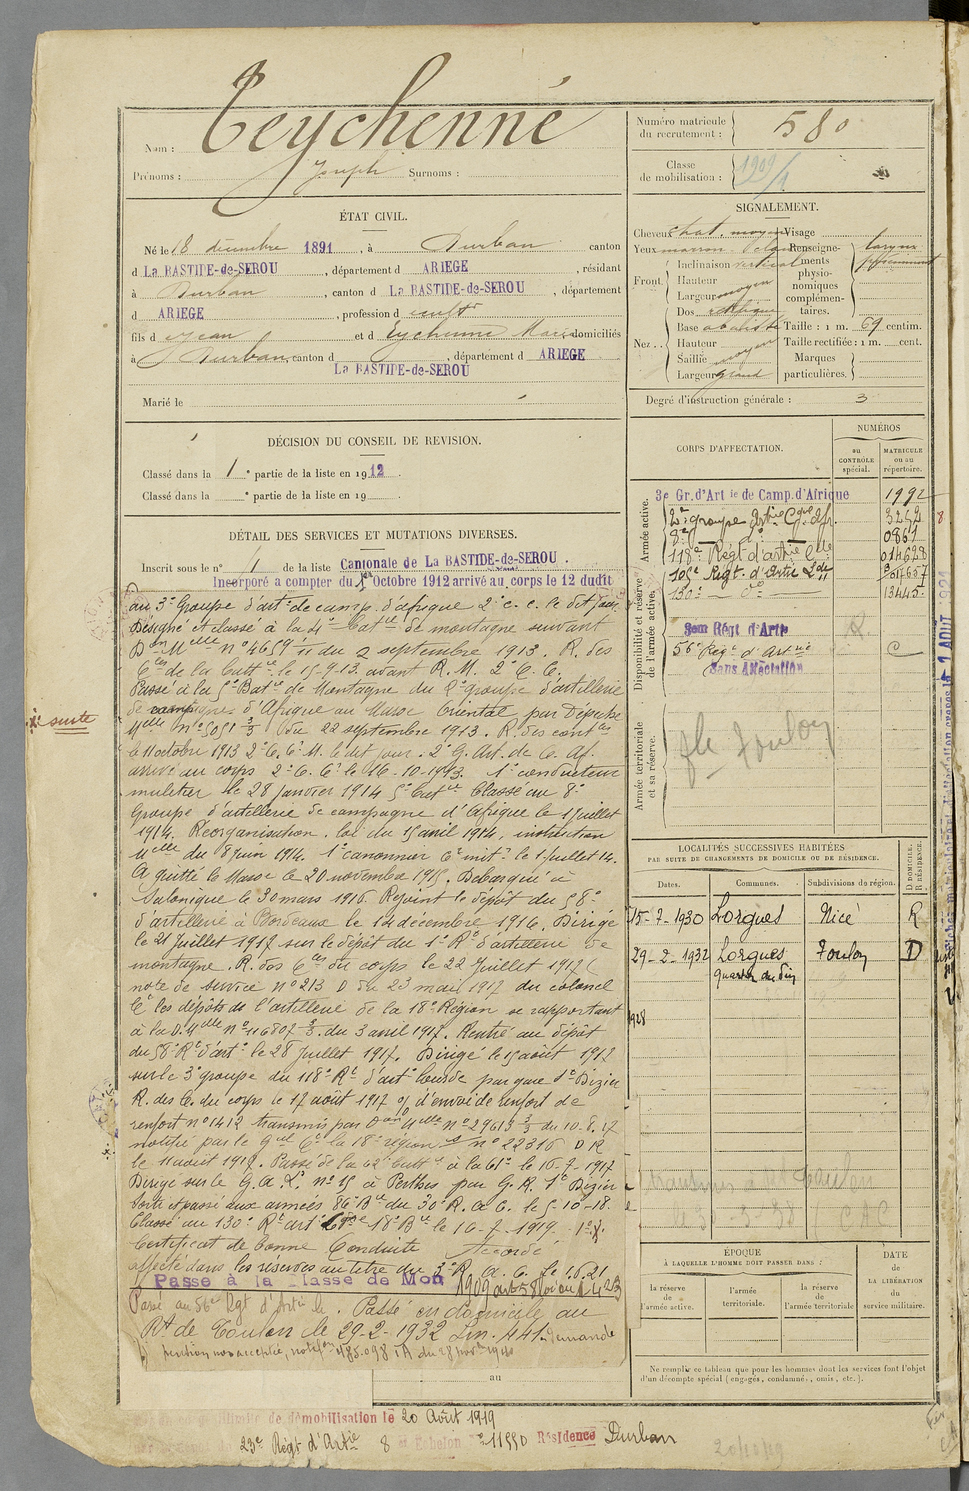 Nom : Teychenné
Prénoms : Joseph Surnoms :
Numéro matricule du recrutement : 580
Classe de mobilisation : 1909/4
ÉTAT CIVIL.
Né le 18 décembre 1891, à Durban canton
d La BASTIDE-de-SEROU, département d ARIEGE, résidant
à Durban, canton d La BASTIDE-de-SEROU, département
d ARIEGE, profession de cultr
fils d Jean et d Eychenne Marie domiciliés
à Durban, canton d La BASTIDE-de-SEROU, département d ARIEGE
Marié le
SIGNALEMENT.
Cheveux chat. moyen Visage
Yeux marron
Front Inclinaison vertical
Hauteur
Largeur moyen
Nez Dos rectiligne
Base abaissée
Hauteur moyen
Saillie moyen
Largeur grand
Renseignements physionomiques complémentaires.
Taille : 1 m. 69 centim.
Taille rectifiée : 1 m. cent.
Marques particulières.
Degré d'instruction générale : 3
DÉCISION DU CONSEIL DE REVISION.
Classé dans la 1e partie de la liste en 1912.
Classé dans la e partie de la liste en 19
DÉTAIL DES SERVICES ET MUTATIONS DIVERSES.
Inscrit sous le n° 1 de la liste Cantonale de La BASTIDE-de-SEROU.
Incorporé a compter du 1er Octobre 1912 arrivé au corps le 12 dudit
au 3e Groupe d'artie de camp. d'afrique 2e c. c. le dit jour
Désigné et classé à la 4e Batie de montagne suivant
Don Melle n° 4659 11 du 2 septembre 1913. R. des
Cles de la Battie le 15.9.13. avant R. M. 2e C. C.
Passé à la 5e Batie de Montagne du 2e groupe d'artillerie
de campagne d'Afrique au Maroc Oriental par Dépêche
Melle n° 5051 3/3 du 22 septembre 1913. R. des contles
le 11 octobre 1913 2e C. Ct M. le dit jour. 2e G. Art. de C. Af.
arrivé au corps 2e C. Ct le 16-10-1913. 1e conducteur
muletier le 28 janvier 1914 5e Battie Classé au 8e
Groupe d'artillerie de campagne d'Afrique le 1 juillet
1914. Réorganisation. loi du 15 avril 1914. instruction
Melle du 8 juin 1914. 1e canonnier Ct mitr le 1 juillet 14.
A quitté le Maroc le 20 novembre 1915. Débarqué à
Salonique le 30 mars 1916. Rejoint le dépôt du 58e
d'artillerie à Bordeaux le 14 décembre 1916. Dirigé
le 21 Juillet 1917 sur le dépôt du 1e Rt d'artillerie de
montagne. R. des Cles du corps le 22 Juillet 1917 (
note de service n° 213 D du 23 mai 1917 du colonel
Ct les dépôts de l'artillerie de la 18e Région se rapportant
à la D. Melle n° 11680 3/3 du 3 avril 1917. Rentré au dépôt
du 58e Rt d'artie le 28 Juillet 1917. Dirigé le 15 août 1917
sur le 3e groupe du 118e Rt d'artie lourde par gare St Dizier
R. des C. du corps le 17 août 1917 o/ d'envoi de renfort de
renfort n° 1412 transmis par Don Melle n° 29613 3/3 du 10.8.17
notifié par le Gal Ct la 18e région s/ n° 22316 D R
le 11 août 1917. Passé de la 62e Battie à la 61e le 16-9-1917
Dirigé sur le G.A.L. n° 15 à Perthes par G. R. St Dizier
Sorti et passé aux armées 86e Bie du 30e R. a. C. le 5-10-18.
Classé au 130e Rt artie Lde 18e Bie le 16-7-1919.
Certificat de bonne Conduite Accordé
affecté dans les réserves au titre du 3e R. a. C. le 1.6.21
Passé à la classe de Mon 1909
Passé au 56e Rgt d'Artie le. Passé en domicile au
Rt de Toulon le 29-2-1932 Lin. 441. demande
pension non acceptée, notifon 485.098 TA du 28 novbre 1940
au
suite
CORPS D'AFFECTATION.
NUMÉROS
au CONTRÔLE spécial.
MATRICULE ou au répertoire.
Armée active.
3e Gr. d'Art ie de Camp. d'Afrique 1992
2e groupe Artie Cgne Afr. 3252
8e do 0869
118e Régt d'artie Lde 014628
105e Régt. d'Artie Lde
130e do 13445
Disponibilité et réserve de l'armée active.
3em Régt d'Artie
56e Régt d'Artie C
Sans Affectation
Armée territoriale et sa réserve.
fle Toulon
LOCALITÉS SUCCESSIVES HABITÉES
PAR SUITE DE CHANGEMENTS DE DOMICILE OU DE RÉSIDENCE.
Dates. Communes. Subdivisions de région. D DOMICILE. R RÉSIDENCE.
15-7-1930 Lorgues Nice R
29-2-1932 Lorgues Toulon D
1928
ÉPOQUE
À LAQUELLE L'HOMME DOIT PASSER DANS :
la réserve de l'armée active.
l'armée territoriale.
la réserve de l'armée territoriale
DATE DE LA LIBÉRATION du service militaire.
Ne remplir ce tableau que pour les hommes dont les services font l'objet
d'un décompte spécial (engagés, condamné, omis, etc.).
de démobilisation le 20 Août 1919
23e Régt d'Artie 8 e Echelon n° 11550 Résidence Durban
20/10/19